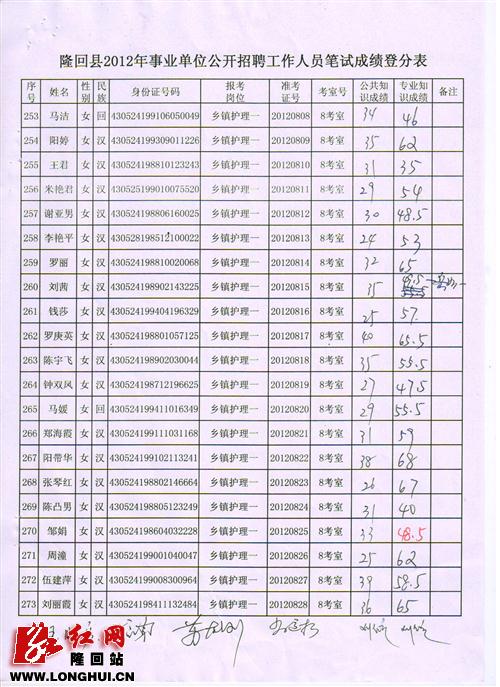 隆回县2012年事业单位公开招聘工作人员笔试成绩登分表
序号 姓名 性别 民族 身份证号码 报考岗位 准考证号 考室号 公共知识成绩 专业知识成绩 备注
253 马洁 女 回 430524199106050049 乡镇护理一 20120808 8考室 34 46
254 阳婷 女 汉 430524199309011226 乡镇护理一 20120809 8考室 35 62
255 王君 女 汉 430524198810123243 乡镇护理一 20120810 8考室 31 35
256 米艳君 女 汉 430525199010075520 乡镇护理一 20120811 8考室 29 54
257 谢亚男 女 汉 430524198806160025 乡镇护理一 20120812 8考室 30 48.5
258 李艳平 女 汉 430528198512100022 乡镇护理一 20120813 8考室 24 53
259 罗丽 女 汉 430524198810020068 乡镇护理一 20120814 8考室 32 65
260 刘茜 女 汉 430524198902143225 乡镇护理一 20120815 8考室 35
261 钱莎 女 汉 430524199404196329 乡镇护理一 20120816 8考室 25 57
262 罗庚英 女 汉 430524198801057125 乡镇护理一 20120817 8考室 40 65.5
263 陈宇飞 女 汉 430524198902030044 乡镇护理一 20120818 8考室 35 55.5
264 钟双风 女 汉 430524198712196625 乡镇护理一 20120819 8考室 27 47.5
265 马媛 女 回 430524199411016349 乡镇护理一 20120820 8考室 29 55.5
266 郑海霞 女 汉 430524199111031168 乡镇护理一 20120821 8考室 31 59
267 阳带华 女 汉 430524199102113241 乡镇护理一 20120822 8考室 38 68
268 张琴红 女 汉 430524198802146664 乡镇护理一 20120823 8考室 26 67
269 陈凸男 女 汉 430524198805123249 乡镇护理一 20120824 8考室 31 40
270 邹娟 女 汉 430524198604032228 乡镇护理一 20120825 8考室 33 48.5
271 周潼 女 汉 430524199001040047 乡镇护理一 20120826 8考室 25 62
272 伍建萍 女 汉 430524199008300964 乡镇护理一 20120827 8考室 39 58.5
273 刘丽霞 女 汉 430524198411132484 乡镇护理一 20120828 8考室 36 65
红网
隆回站
WWW.LONGHUI.CN